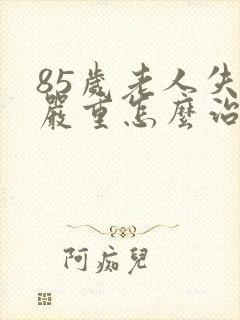 85歲老人失
嚴重怎麼治
阿痴兒